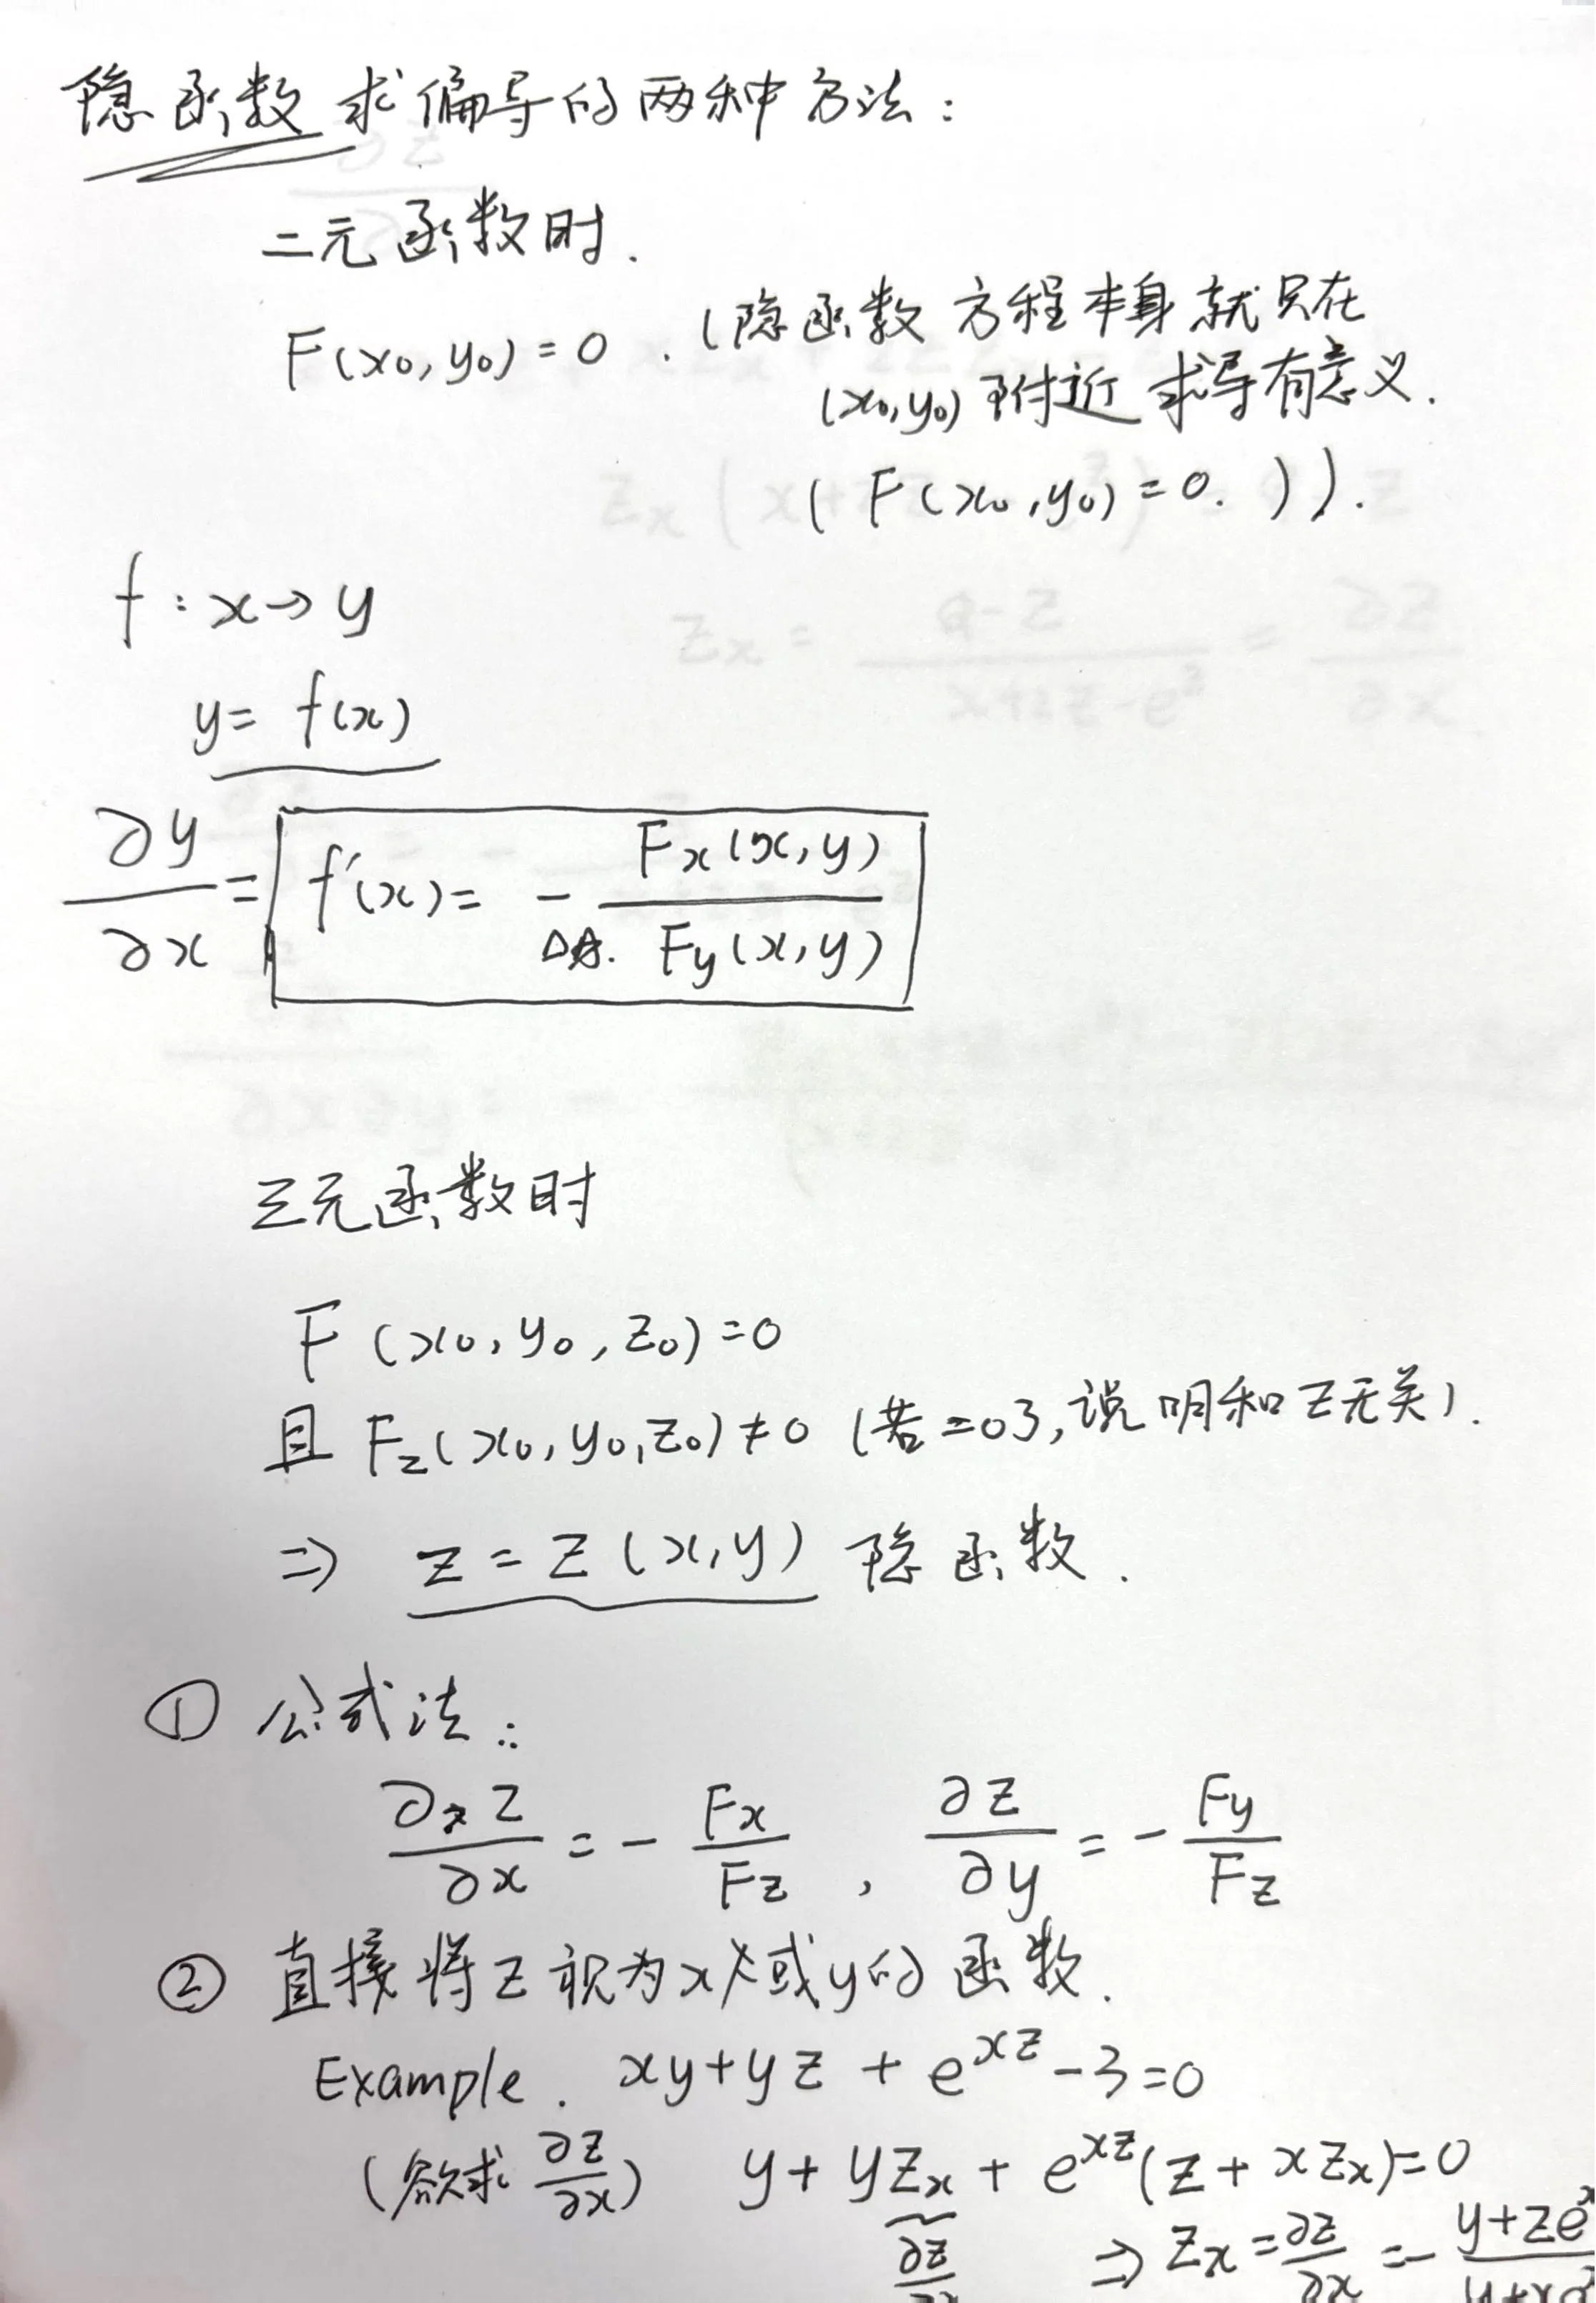 隐函数求偏导的两种方法:
二元函数时.
F(x₀,y₀)=0. (隐函数方程本身就只在
(x₀,y₀)附近求导有意义.
(F(x₀,y₀)=0.)).
f:x→y
y=f(x)
∂y/∂x = f'(x)= - Fx(x,y)/Fy(x,y)
三元函数时
F(x₀,y₀,z₀)=0
且Fz(x₀,y₀,z₀)≠0 (若=0了,说明和z无关).
⇒ z=z(x,y) 隐函数.
① 公式法:
∂z/∂x = - Fx/Fz , ∂z/∂y = - Fy/Fz
② 直接将z视为x或y的函数.
Example. xy+yz+e^{xz}-3=0
(欲求 ∂z/∂x) y+yzx+e^{xz}(z+xzx)=0
∂z ⇒ zx=∂z/∂x=- y+ze/y+xe